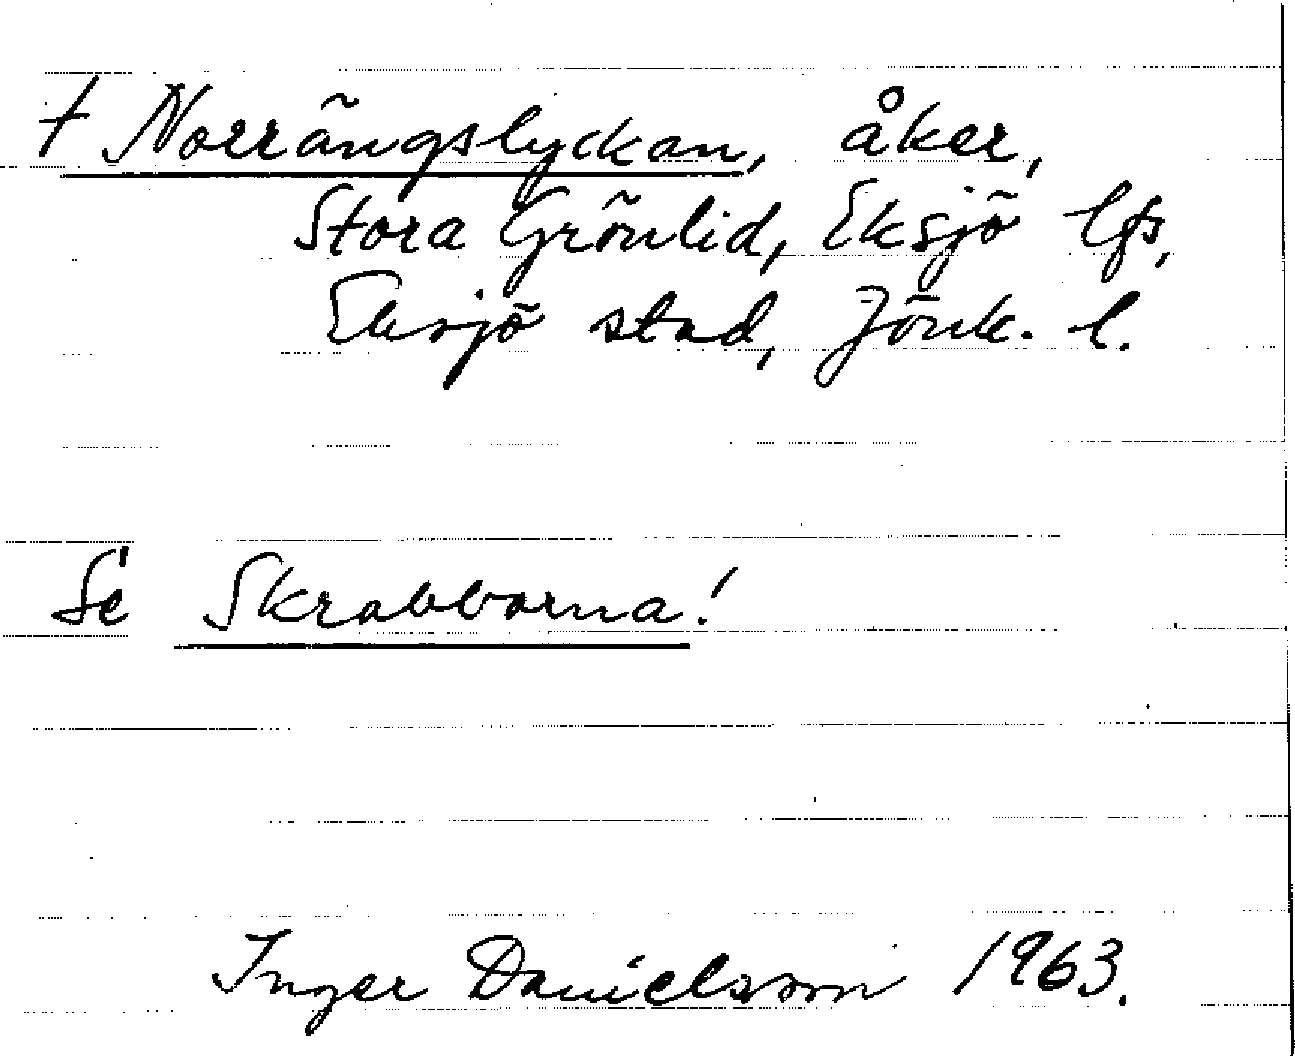 † Norrängslyckan, åker,
Stora Grönlid, Eksjö lfs,
Eksjö stad, Jönk. l.
Se Skrabborna!
Inger Danielsson 1963.